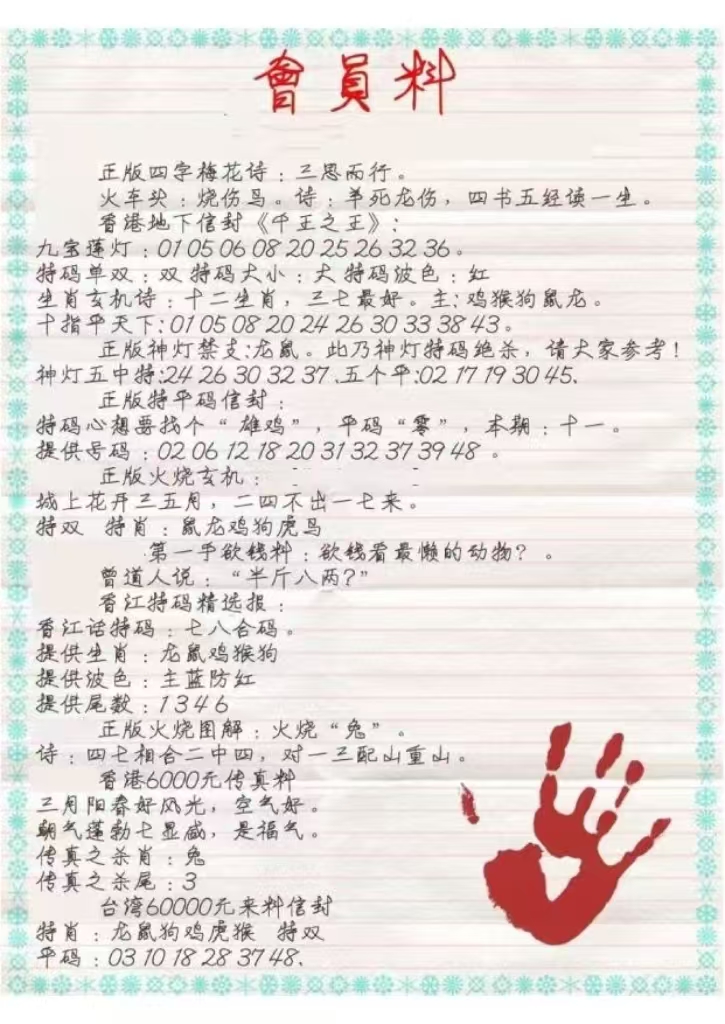 會員料
正版四字梅花诗：三思而行。
火车头：烧伤鸟。诗：羊死龙伤，四书五经读一生。
香港地下信封《千王之王》：
九宝莲灯：01 05 06 08 20 25 26 32 36。
特码单双：双 特码大小：大 特码波色：红
生肖玄机诗：十二生肖，三七最好。主：鸡猴狗鼠龙。
十指平天下：01 05 08 20 24 26 30 33 38 43。
正版神灯禁支：龙鼠。此乃神灯特码绝杀，请大家参考！
神灯五中特：24 26 30 32 37.五个平：02 17 19 30 45.
正版特平码信封：
特码心想要找个“雄鸡”，平码“零”，本期：十一。
提供号码：02 06 12 18 20 31 32 37 39 48 。
正版火烧玄机：
城上花开三五月，二四不出一七来。
特双 特肖：鼠龙鸡狗虎马
第一手欲钱料：欲钱看最懒的动物？。
曾道人说：“半斤八两？”
香江特码精选报：
香江话特码：七八合码。
提供生肖：龙鼠鸡猴狗
提供波色：主蓝防红
提供尾数：1 3 4 6
正版火烧图解：火烧“兔”。
诗：四七相合二中四，对一三配山重山。
香港6000元传真料
三月阳春好风光，空气好。
朝气蓬勃七显威，是福气。
传真之杀肖：兔
传真之杀尾：3
台湾60000元来料信封
特肖：龙鼠狗鸡虎猴 特双
平码：03 10 18 28 37 48.